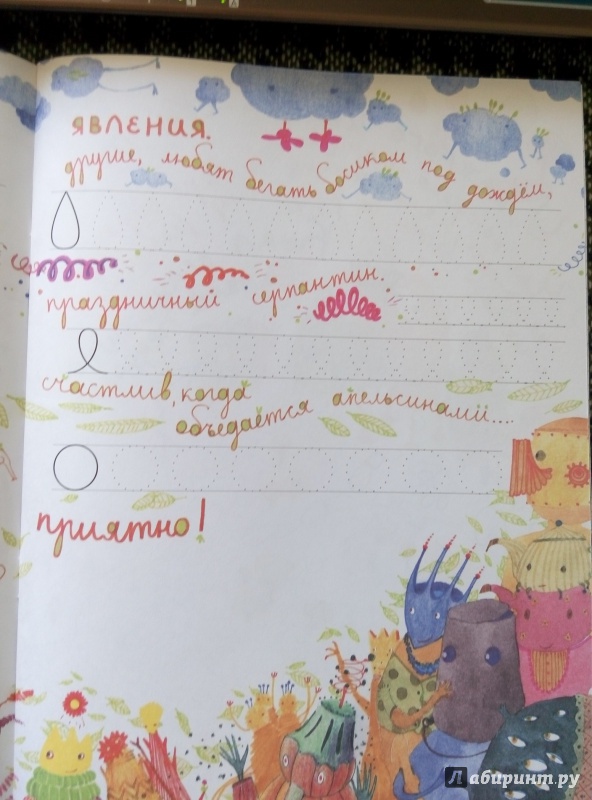 явления.
другие, любят бегать босиком под дождём,
праздничный серпантин.
счастлив, когда
объедается апельсинами...
приятно!
Лабиринт.ру